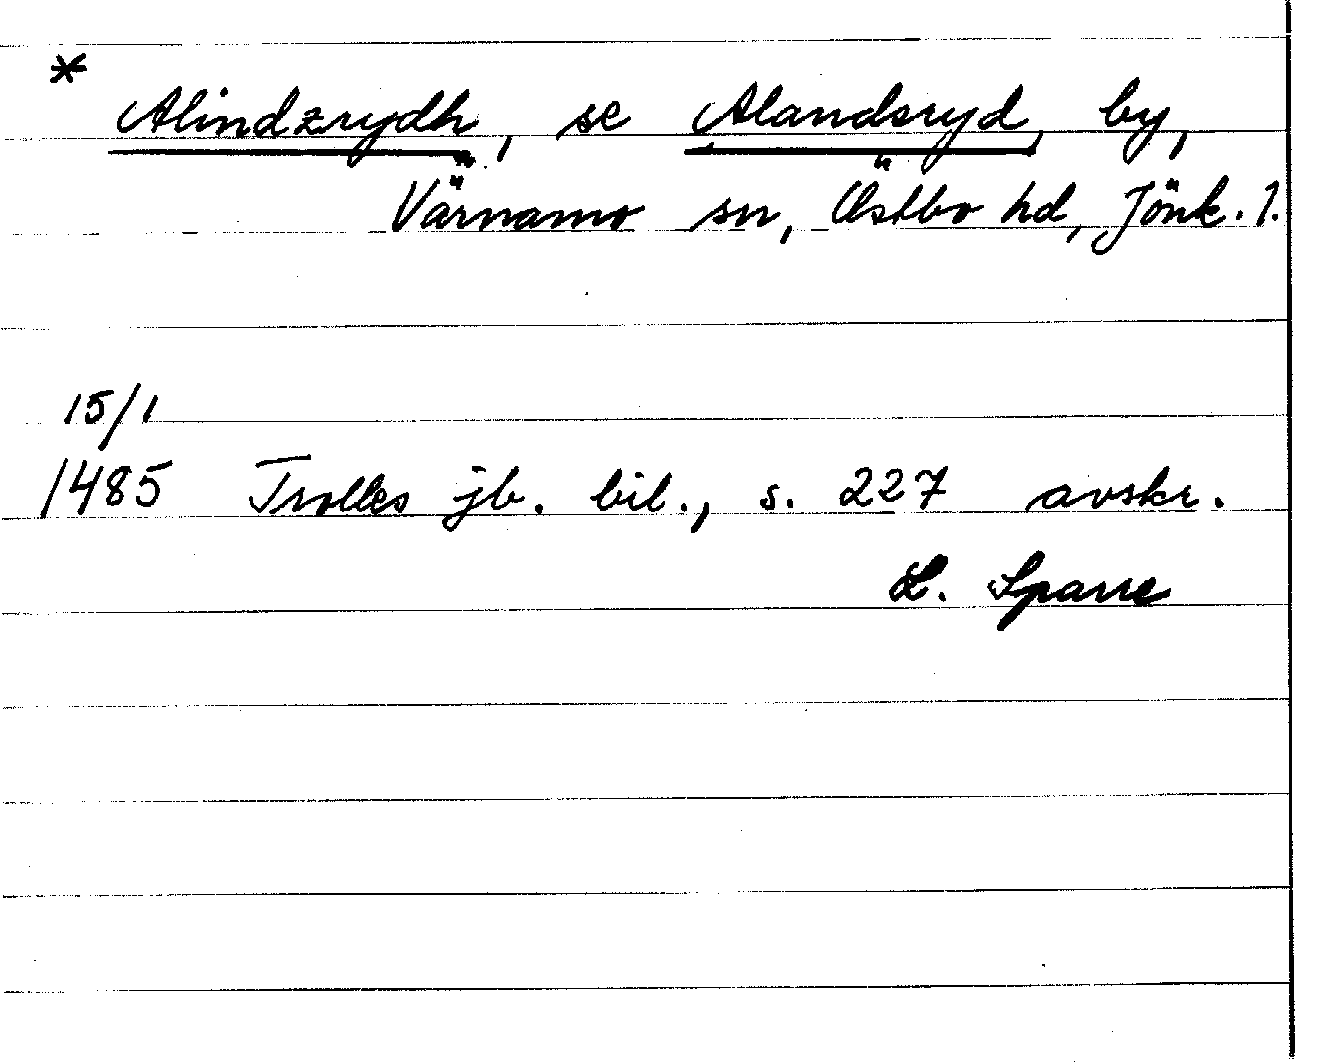 *
Alindzrydh, se Alandsryd, by,
Värnamo sn, Östbo hd, Jönk. l.
15/1
1485 Trolles jb. bil., s. 227 avskr.
L. Sparre